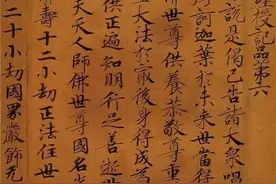 授記品第六
說是偈已告諸大眾唱
訶迦葉於未來世當得
世尊供養恭敬尊重
大法於最後身得成為
供正遍知明行足善逝
夫天人師佛世尊國名光
壽十二小劫正法住世
二十小劫國界嚴飾无